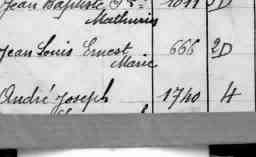 Jean Baptiste
Mathurin
Jean Louis Ernest 666 2D
Marie
André Joseph 1740 4